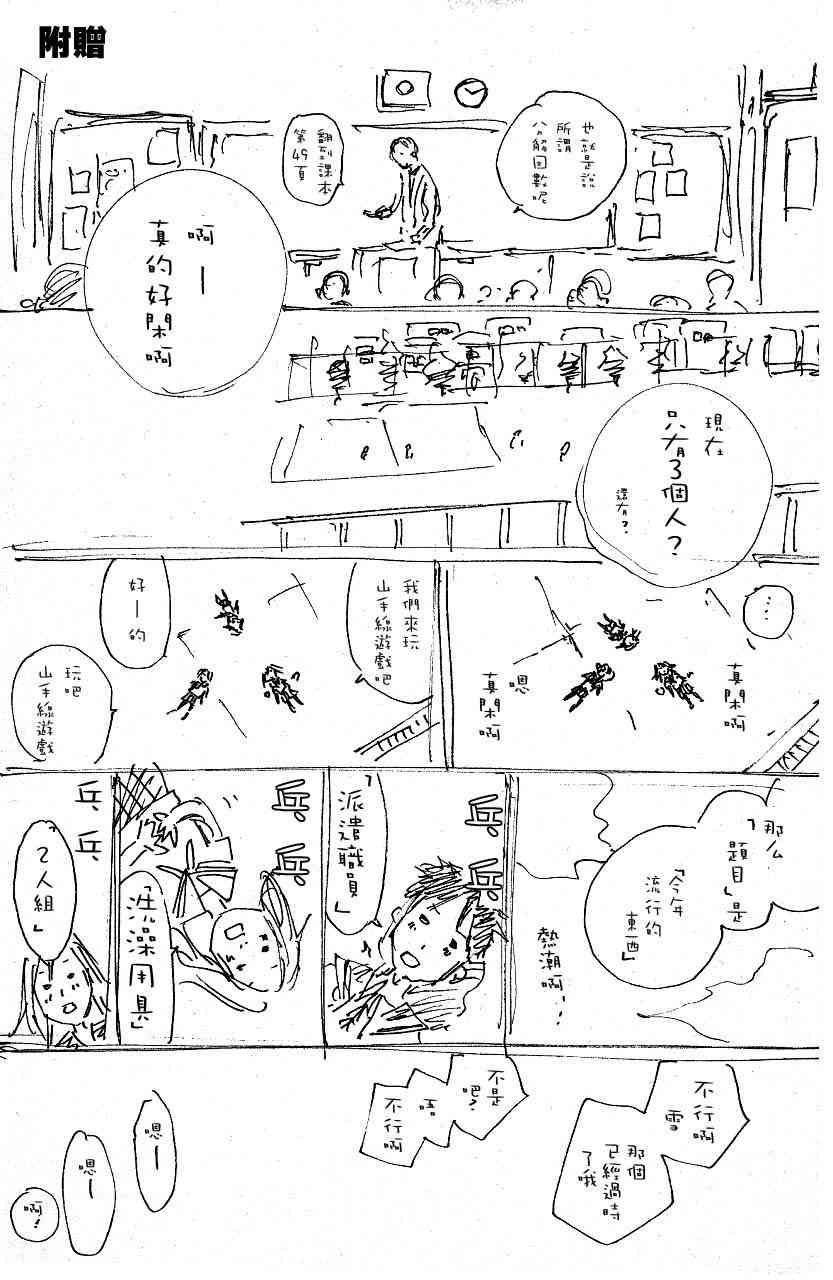 附贈
也就是說
所謂
八解回數呢
翻到課本
第49頁
啊ー
真的好閑啊
現在
只有3個人?
還有?
…
真閑啊
嗯
真閑啊
我們來玩
山手線遊戲吧
好ー的
玩吧
山手線遊戲
那么
「題目」是
「今年
流行的
東西」
熱潮啊!
兵
兵
「派遣職員」
兵
兵
「洗澡用具」
兵
兵
「2人組」
不行啊
雪
那個
已經過時
了哦
不是
吧?
唔
不行啊
嗯ー
嗯ー
啊!